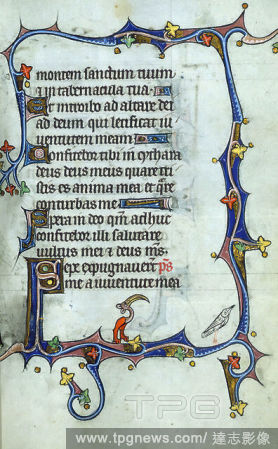 montem sanctum tuum
⁊ in tabernacula tua
Et introibo ad altare dei
ad deum qui letificat iu
uentutem meam
Confitebor tibi in cythara
deus deus meus quare tri
stis es anima mea et qre
conturbas me
Spera in deo qm adhuc
confitebor illi salutare
uultus mei ⁊ deus ms
Sepe expugnauert ps
me a iuuentute mea
TPG
www.tpgnews.com/ 達志影像